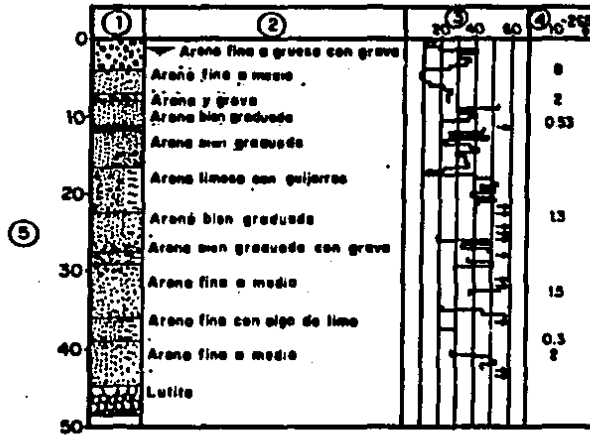 ① ② ③ ④
20 40 60
0
Arena fina a gruesa con grava
Arena fina a media
8
Arena y grava
2
10
Arena bien graduada
0.53
Arena bien graduada
Arena limosa con guijarros
20
Arena bien graduada
1.3
⑤
Arena bien graduada con grava
30
Arena fina a media
1.5
Arena fina con algo de limo
0.3
40
Arena fina a media
2
Lutita
50